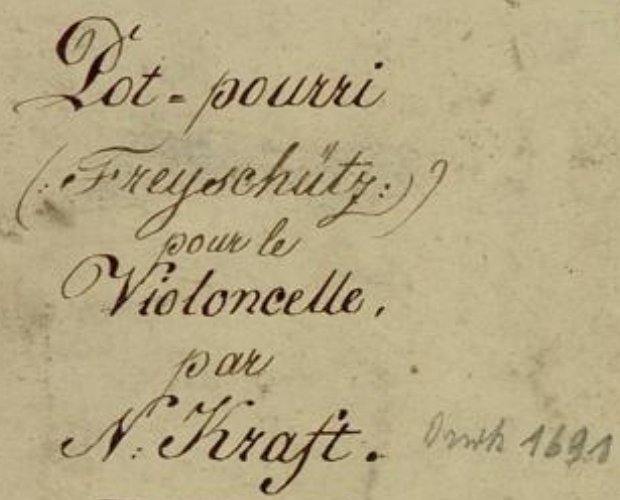 Pot-pourri
(: Freyschütz :)
pour le
Violoncelle.
par
N. Kraft.